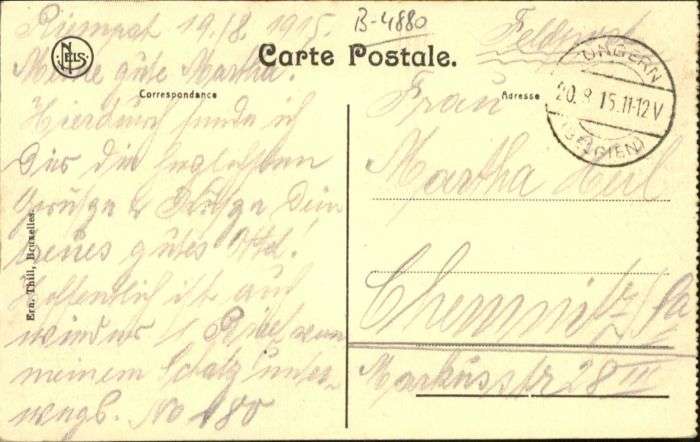 19.8.1915.
B-4880
Feldpost
NELS
Carte Postale.
UNGERN
20. 8. 15. 11-12 V
(BELGIEN)
Correspondance
Adresse
Meine gute Martha!
Hierdurch sende ich
Dir die herzlichsten
Grüsse & Küsse Dein
gutes
Hoffentlich ist auch
wieder 1 Brief von
meinem Schatz unter-
wegs. No 180
Frau
Martha
Chemnitz /Sa
Markusstr 28 III
Ern. Thill, Bruxelles.